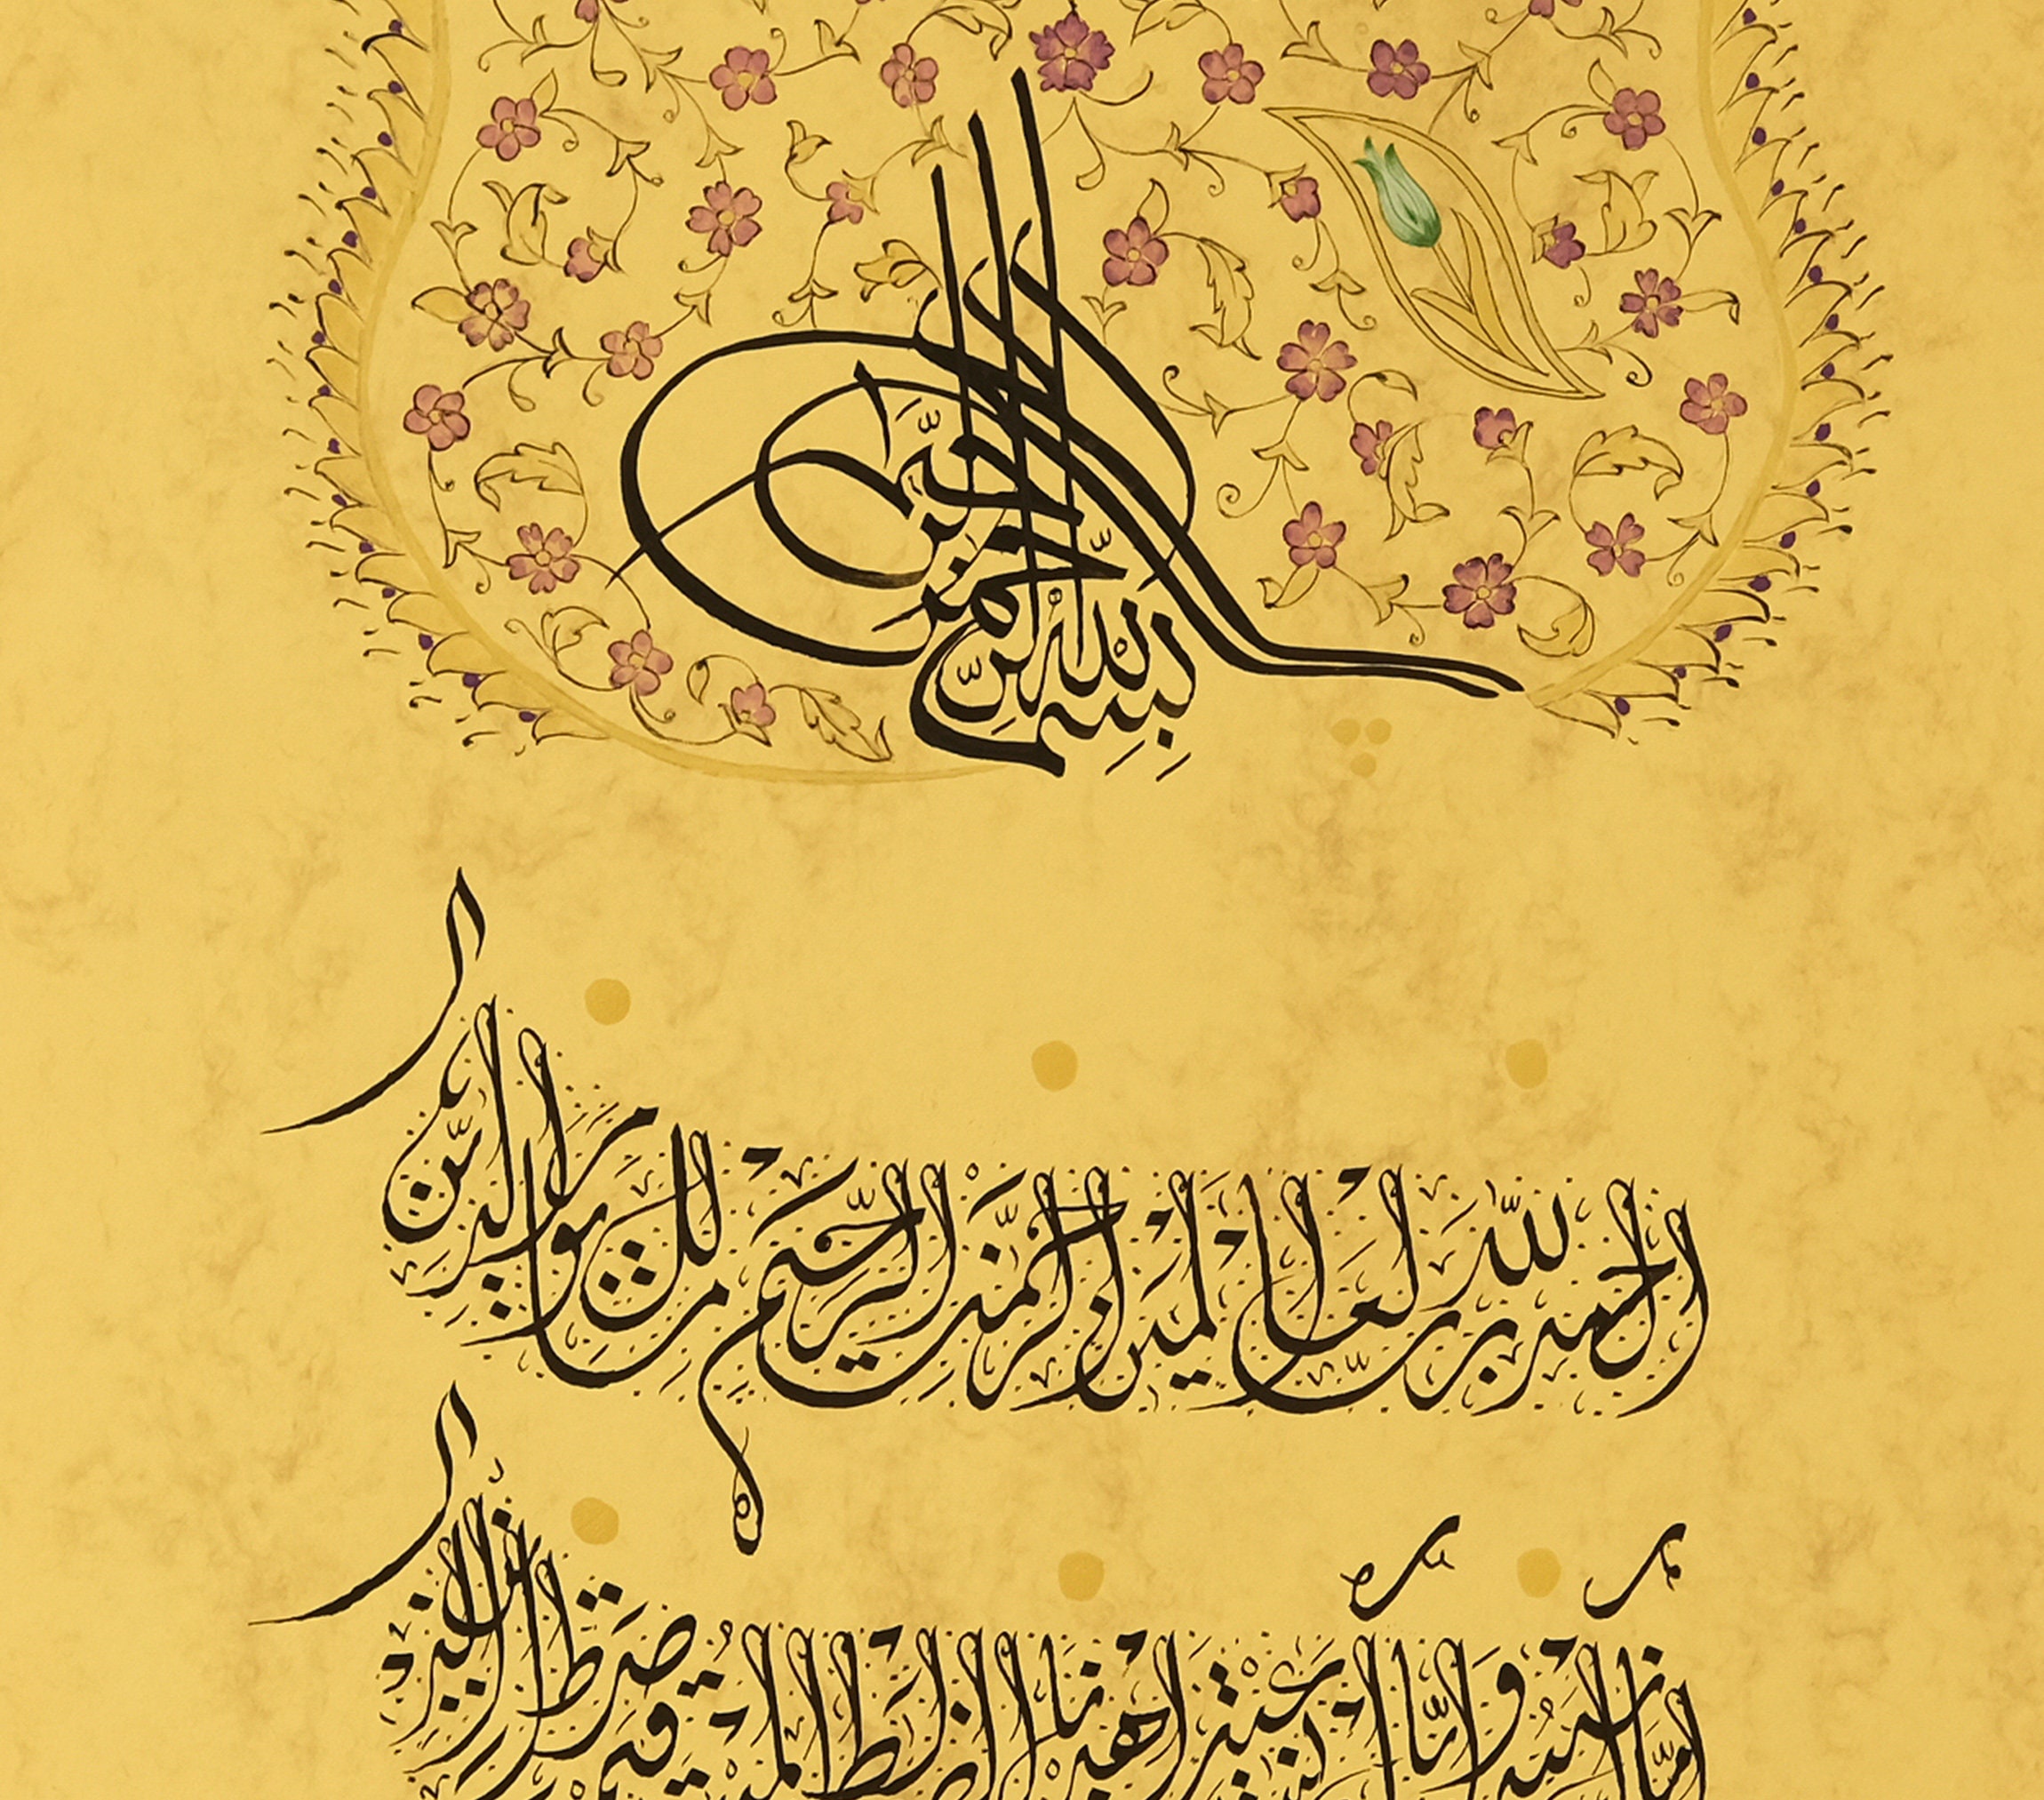 بسم الله الرحمن الرحيم
الحمد لله رب العالمين الرحمن الرحيم مالك يوم الدين
اياك نعبد واياك نستعين اهدنا الصراط المستقيم صراط الذين